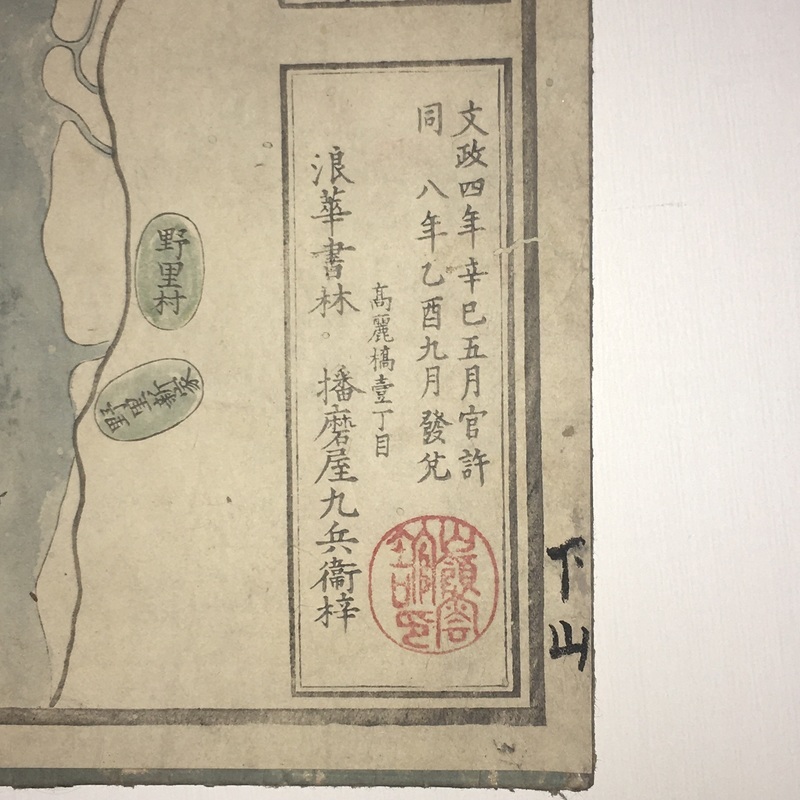 文政四年辛巳五月官許
同　八年乙酉九月發兌
高麗橋壹丁目
浪華書林。播磨屋九兵衞梓
野里村
下山